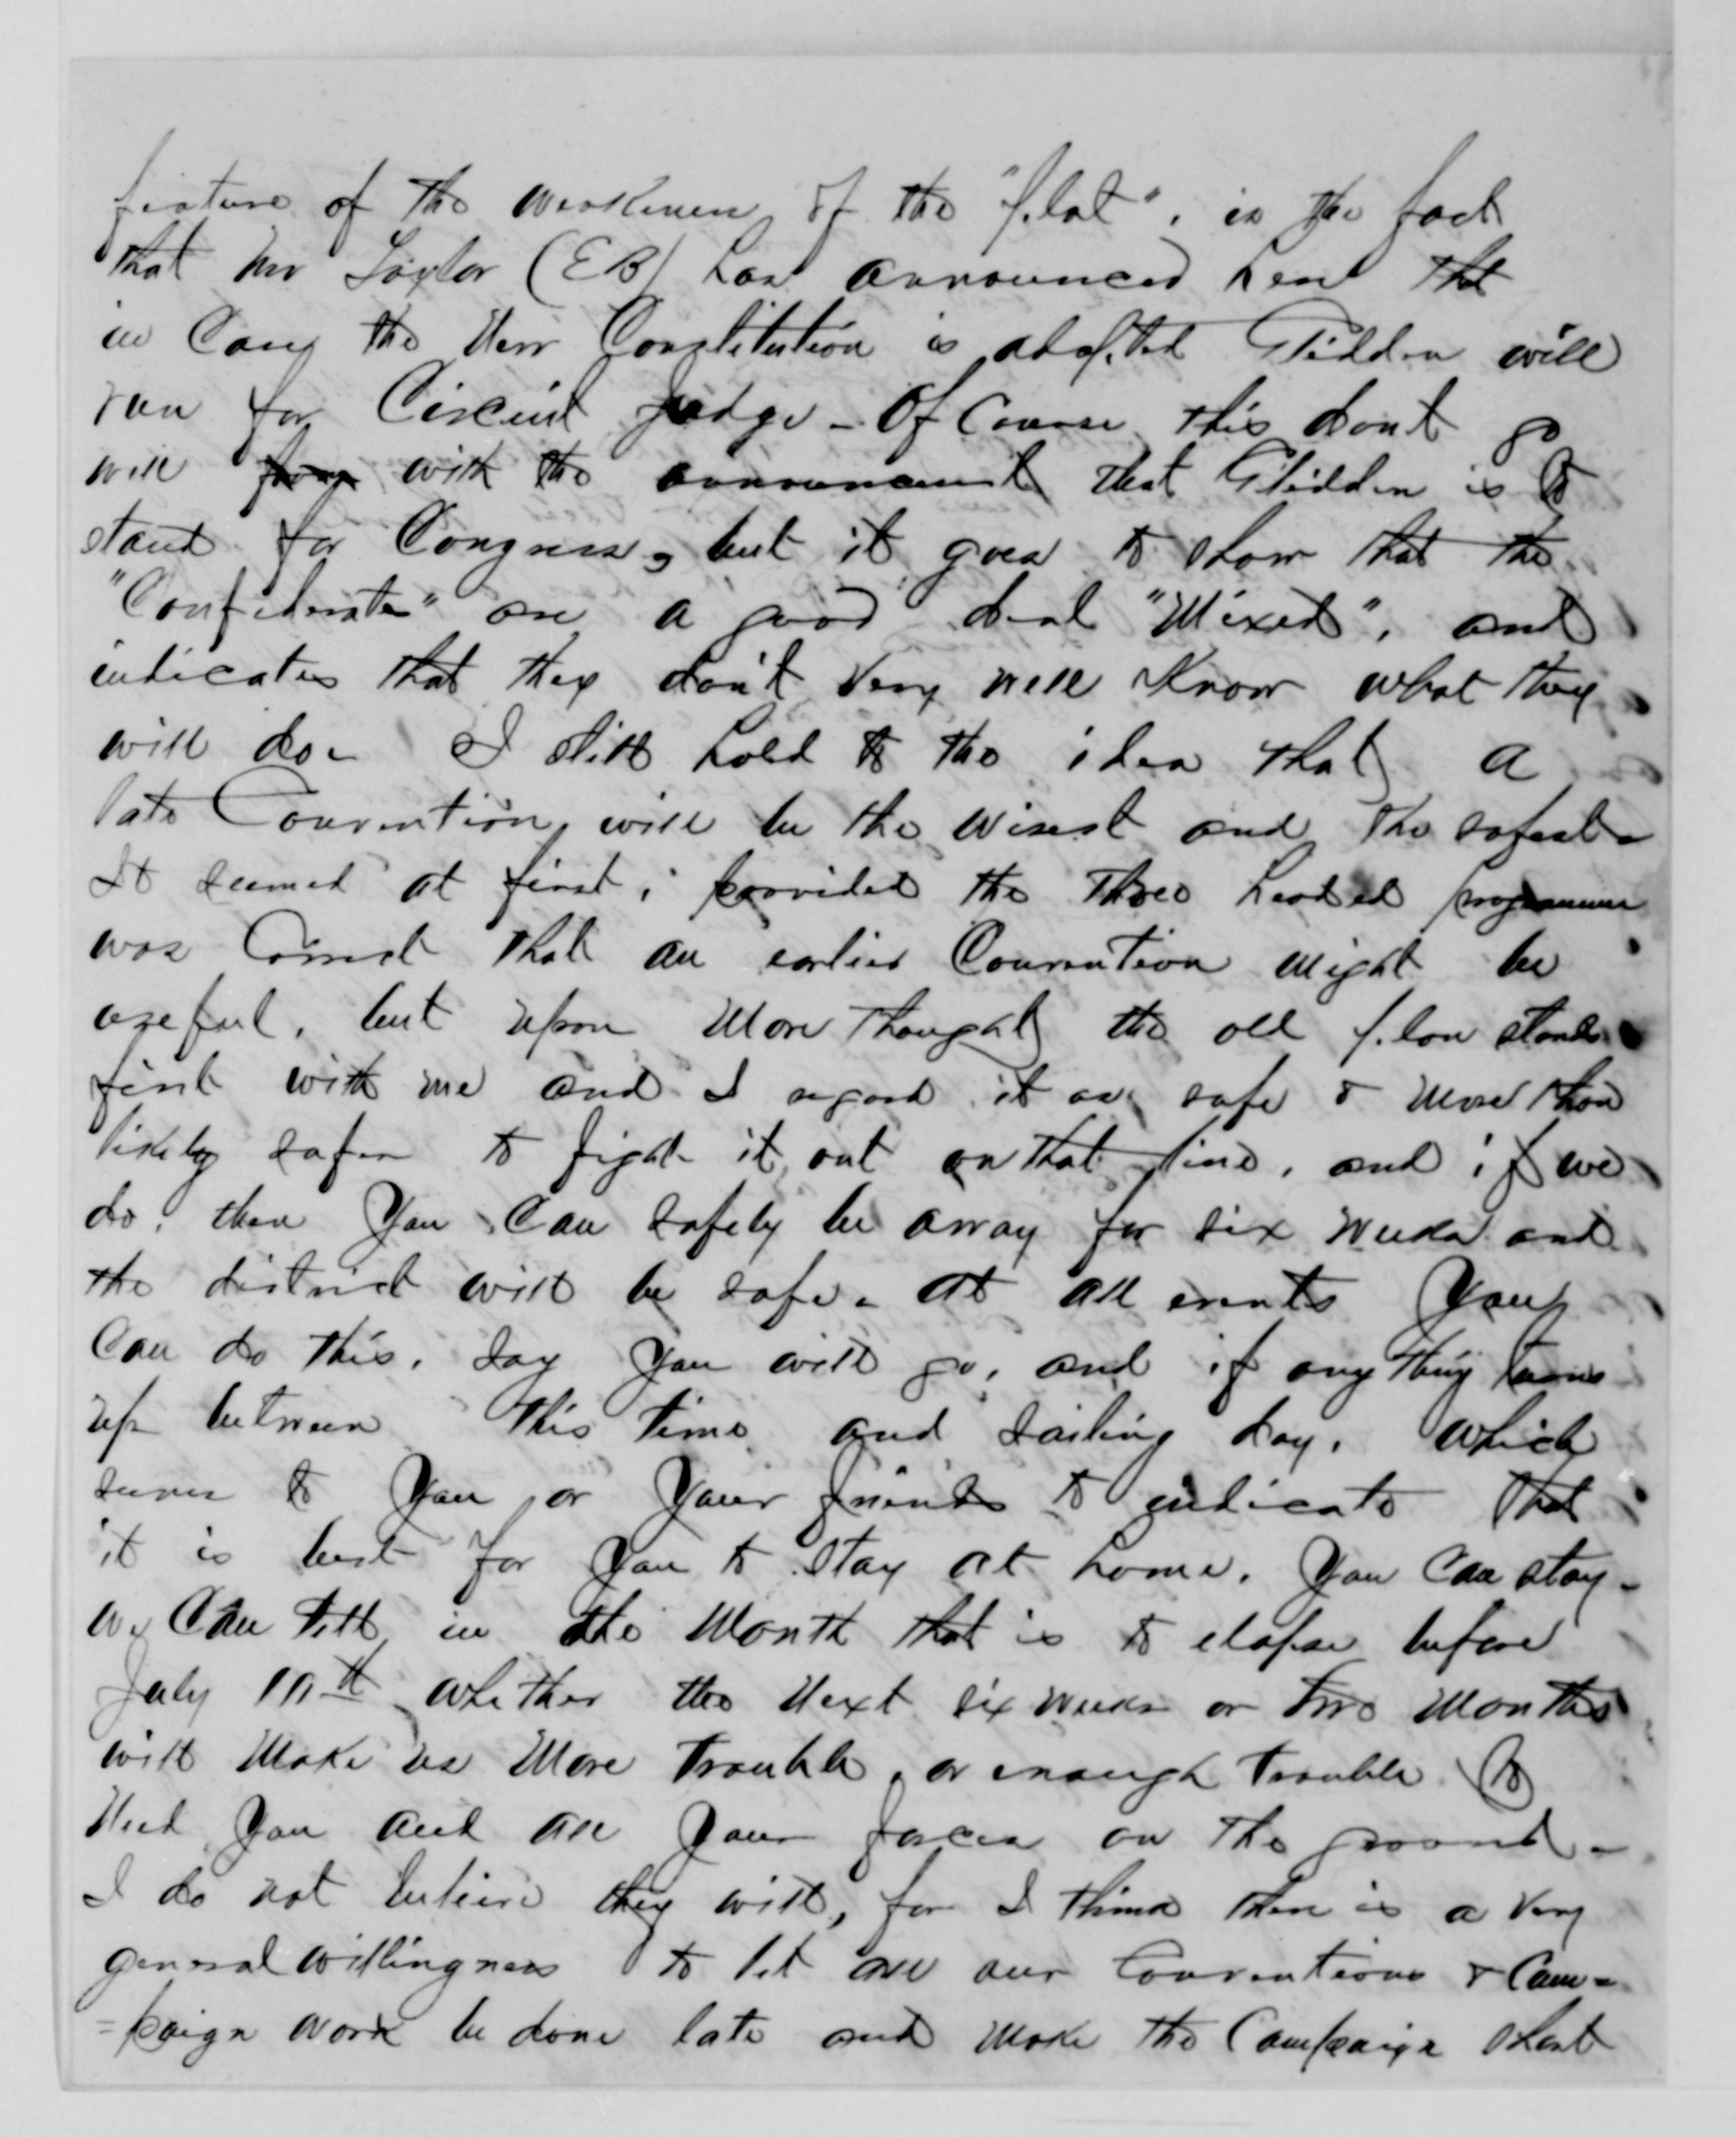 feature of the weakness of the "plot", is the fact
that Mr Taylor (EB) has announced here that
in Case the New Constitution is adopted Glidden will
run for Circuit Judge - Of Course this dont go
well with the announcement that Glidden is to
stand for Congress, but it goes to show that the
"Confederates" are a good deal "Mixed", and
indicates that they don't very well Know what they
will do - I still hold to the idea that a
late Convention, will be the wisest and the safest -
It seemed at first, provided the three headed programme
was Correct that an earlier Convention might be
useful, but upon More thought the old plan stands
first with me and I regard it as safe & more than
likely safer to fight it out on that line, and if we
do, then You Can safely be away for six weeks and
the district will be safe - At all events You
Can do this, say you will go, and if any thing turns
up between this time and sailing day, which
seems to You or Your friends to indicate that
it is best for You to stay at home, You Can stay -
We Can tell in the Month that is to elapse before
July 10th whether the Next six weeks or two Months
will Make us More trouble, or enough trouble to
Need You and all Your forces on the ground -
I do not believe they will, for I think there is a very
general willingness to let all our Conventions & Cam=
=paign work be done late and make the Campaign short